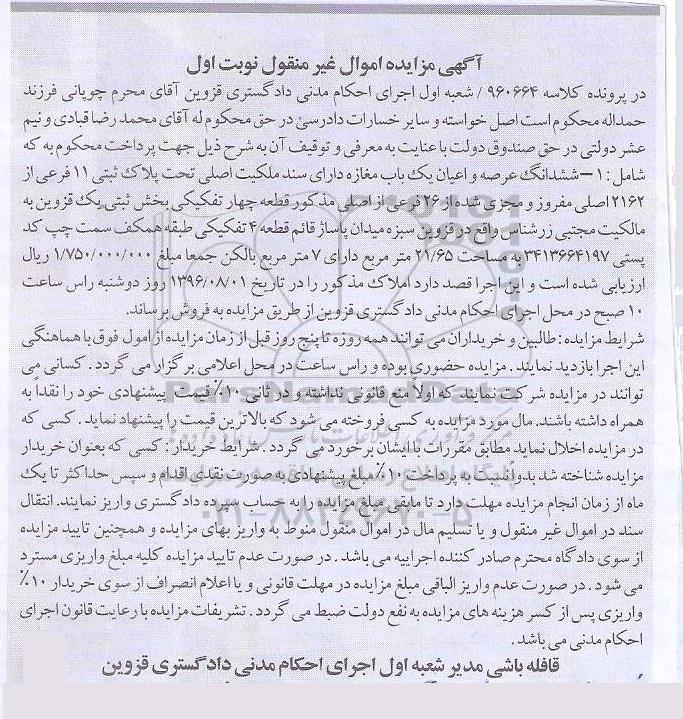 آگهی مزایده اموال غیر منقول نوبت اول
در پرونده کلاسه ۹۶۰۶۶۴ / شعبه اول اجرای احکام مدنی دادگستری قزوین آقای محرم چوپانی فرزند
حمداله محکوم است اصل خواسته و سایر خسارات دادرسی در حق محکوم له آقای محمد رضا قبادی و نیم
عشر دولتی در حق صندوق دولت با عنایت به معرفی و توقیف آن به شرح ذیل جهت پرداخت محکوم به که
شامل : ۱ – ششدانگ عرصه و اعیان یک باب مغازه دارای سند ملکیت اصلی تحت پلاک ثبتی ۱۱ فرعی از
۲۱۶۲ اصلی مفروز و مجزی شده از ۲۶ فرعی از اصلی مذکور قطعه چهار تفکیکی بخش ثبتی یک قزوین به
مالکیت مجتبی زرشناس واقع در قزوین سبزه میدان پاساژ قائم قطعه ۴ تفکیکی طبقه همکف سمت چپ کد
پستی ۳۴۱۳۶۶۴۱۹۷ به مساحت ۲۱/۶۵ متر مربع دارای ۷ متر مربع بالکن جمعا مبلغ ۱/۷۵۰/۰۰۰/۰۰۰ ریال
ارزیابی شده است و این اجرا قصد دارد املاک مذکور را در تاریخ ۱۳۹۶/۰۸/۰۱ روز دوشنبه راس ساعت
۱۰ صبح در محل اجرای احکام مدنی دادگستری قزوین از طریق مزایده به فروش برساند.
شرایط مزایده : طالبین و خریداران می توانند همه روزه تا پنج روز قبل از زمان مزایده از امول فوق با هماهنگی
این اجرا بازدید نمایند . مزایده حضوری بوده و راس ساعت در محل اعلامی برگزار می گردد . کسانی می
توانند در مزایده شرکت نمایند که اولا منع قانونی نداشته و در ثانی ۱۰٪ قیمت پیشنهادی خود را نقداً به
همراه داشته باشند. مال مورد مزایده به کسی فروخته می شود که بالاترین قیمت را پیشنهاد نماید . کسی که
در مزایده اخلال نماید مطابق مقررات با ایشان برخورد می گردد . شرایط خریدار : کسی که بعنوان خریدار
مزایده شناخته شد بدواً نسبت به پرداخت ۱۰٪ مبلغ پیشنهادی به صورت نقدی اقدام و سپس حداکثر تا یک
ماه از زمان انجام مزایده مهلت دارد تا مابقی مبلغ مزایده را به حساب سپرده دادگستری واریز نمایند. انتقال
سند در اموال غیر منقول و یا تسلیم مال در اموال منقول منوط به واریز بهای مزایده و همچنین تایید مزایده
از سوی دادگاه محترم صادر کننده اجراییه می باشد . در صورت عدم تایید مزایده کلیه مبلغ واریزی مسترد
می شود . در صورت عدم واریز الباقی مبلغ مزایده در مهلت قانونی و یا اعلام انصراف از سوی خریدار ۱۰٪
واریزی پس از کسر هزینه های مزایده به نفع دولت ضبط می گردد . تشریفات مزایده با رعایت قانون اجرای
احکام مدنی می باشد .
قافله باشی مدیر شعبه اول اجرای احکام مدنی دادگستری قزوین
ParsNamadData
۰۲۱-۸۸۳۴۹۶۷۰-۵